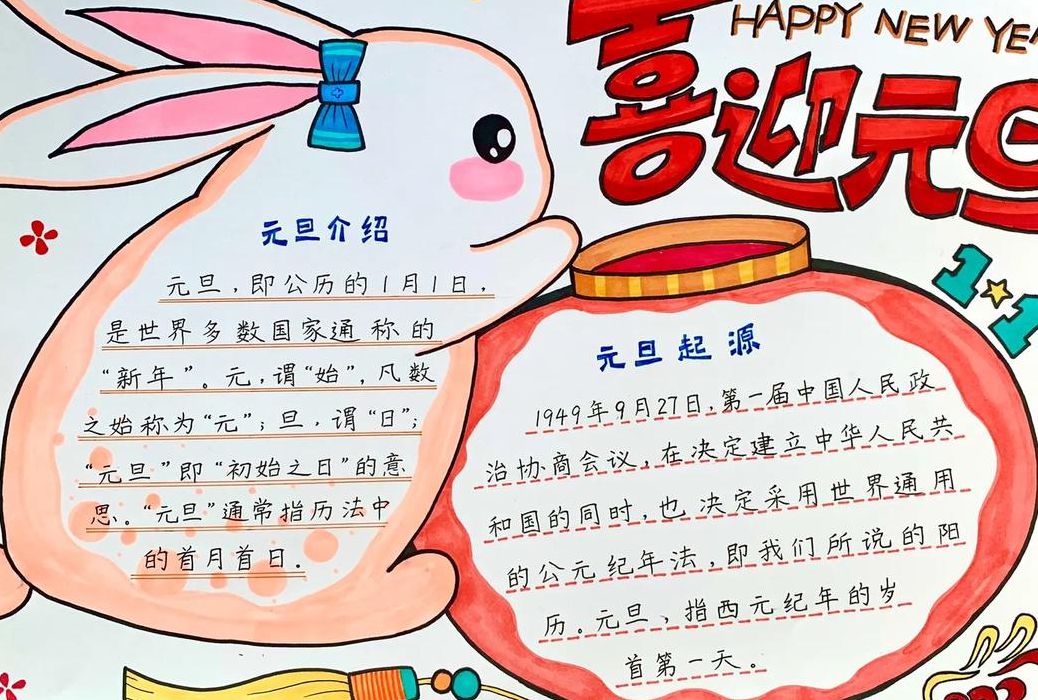 HAPPY NEW YE
喜迎元旦
1·1
元旦介绍
元旦,即公历的1月1日,
是世界多数国家通称的
“新年”。元,谓“始”,凡数
之始称为“元”;旦,谓“日”;
“元旦”即“初始之日”的意
思。“元旦”通常指历法中
的首月首日.
元旦起源
1949年9月27日,第一届中国人民政
治协商会议,在决定建立中华人民共
和国的同时,也决定采用世界通用
的公元纪年法,即我们所说的阳
历。元旦,指西元纪年的岁
首第一天。